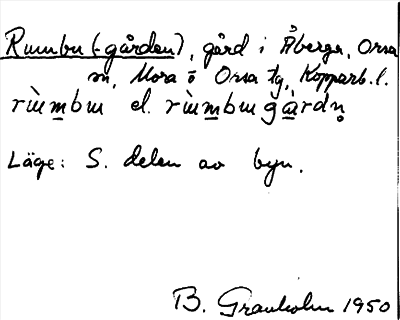 Rumbu (-gården), gård i Åberga, Orsa
sn, Mora o Orsa tg, Kopparb. l.
rùmbu el. rùmbugàrdn̥
Läge: S. delen av byn.
B. Granholm 1950